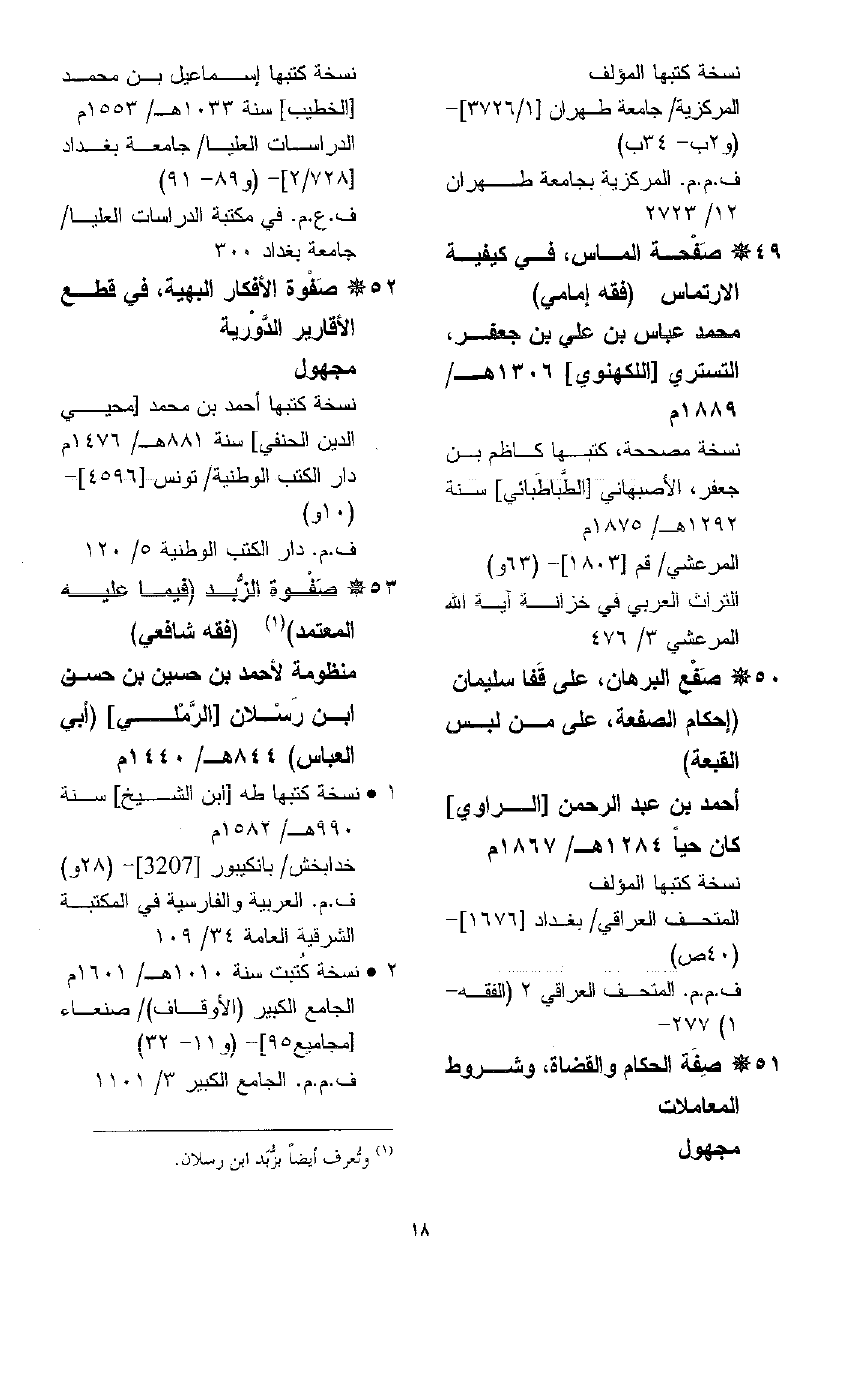 نسخة كتبها المؤلف
المركزية/ جامعة طهران [٣٧٢٦/١]-
(و٢ب- ٣٤ب)
ف.م.م. المركزية بجامعة طهران
١٢/ ٢٧٢٣
٤٩* صَفْحة الماس، في كيفية
الارتماس (فقه إمامي)
محمد عباس بن علي بن جعفر،
التستري [اللكهنوي] ١٣٠٦هـ/
١٨٨٩م
نسخة مصححة، كتبها كاظم بن
جعفر، الأصبهاني [الطَّباطَبائي] سنة
١٢٩٢هـ/ ١٨٧٥م
المرعشي/ قم [١٨٠٣]- (٦٣و)
التراث العربي في خزانة آية الله
المرعشي ٣/ ٤٧٦
٥٠* صَفْع البرهان، على قَفا سليمان
(إحكام الصفعة، على من لبس
القبعة)
أحمد بن عبد الرحمن [الراوي]
كان حياً ١٢٨٤هـ/ ١٨٦٧م
نسخة كتبها المؤلف
المتحف العراقي/ بغداد [١٦٧٦]-
(٤٠ص)
ف.م.م. المتحف العراقي ٢ (الفقه-
١) ٢٧٧-
٥١* صِفَة الحكام والقضاة، وشروط
المعاملات
مجهول
نسخة كتبها إسماعيل بن محمد
[الخطيب] سنة ١٠٣٣هـ/ ١٥٥٣م
الدراسات العليا/ جامعة بغداد
[٢/٧٢٨]- (و٨٩- ٩١)
ف.ع.م. في مكتبة الدراسات العليا/
جامعة بغداد ٣٠٠
٥٢* صَفْوة الأفكار البهية، في قطع
الأقارير الدَّوْرية
مجهول
نسخة كتبها أحمد بن محمد [محيي
الدين الحنفي] سنة ٨٨١هـ/ ١٤٧٦م
دار الكتب الوطنية/ تونس [٤٥٩٦]-
(١٠و)
ف.م. دار الكتب الوطنية ٥/ ١٢٠
٥٣* صَفْوة الزُّبد (فيما عليه
المعتمد)(١) (فقه شافعي)
منظومة لأحمد بن حسين بن حسن
ابن رَسْلان [الرَّمْلي] (أبي
العباس) ٨٤٤هـ/ ١٤٤٠م
١ • نسخة كتبها طه [ابن الشيخ] سنة
٩٩٠هـ/ ١٥٨٢م
خدابخش/ بانكيبور [3207]- (٢٨و)
ف.م. العربية والفارسية في المكتبة
الشرقية العامة ٣٤/ ١٠٩
٢ • نسخة كُتبت سنة ١٠١٠هـ/ ١٦٠١م
الجامع الكبير (الأوقاف)/ صنعاء
[مجاميع٩٥]- (و١١- ٣٢)
ف.م.م. الجامع الكبير ٣/ ١١٠١
(١) وتُعرف أيضاً بزُبَد ابن رسلان.
١٨